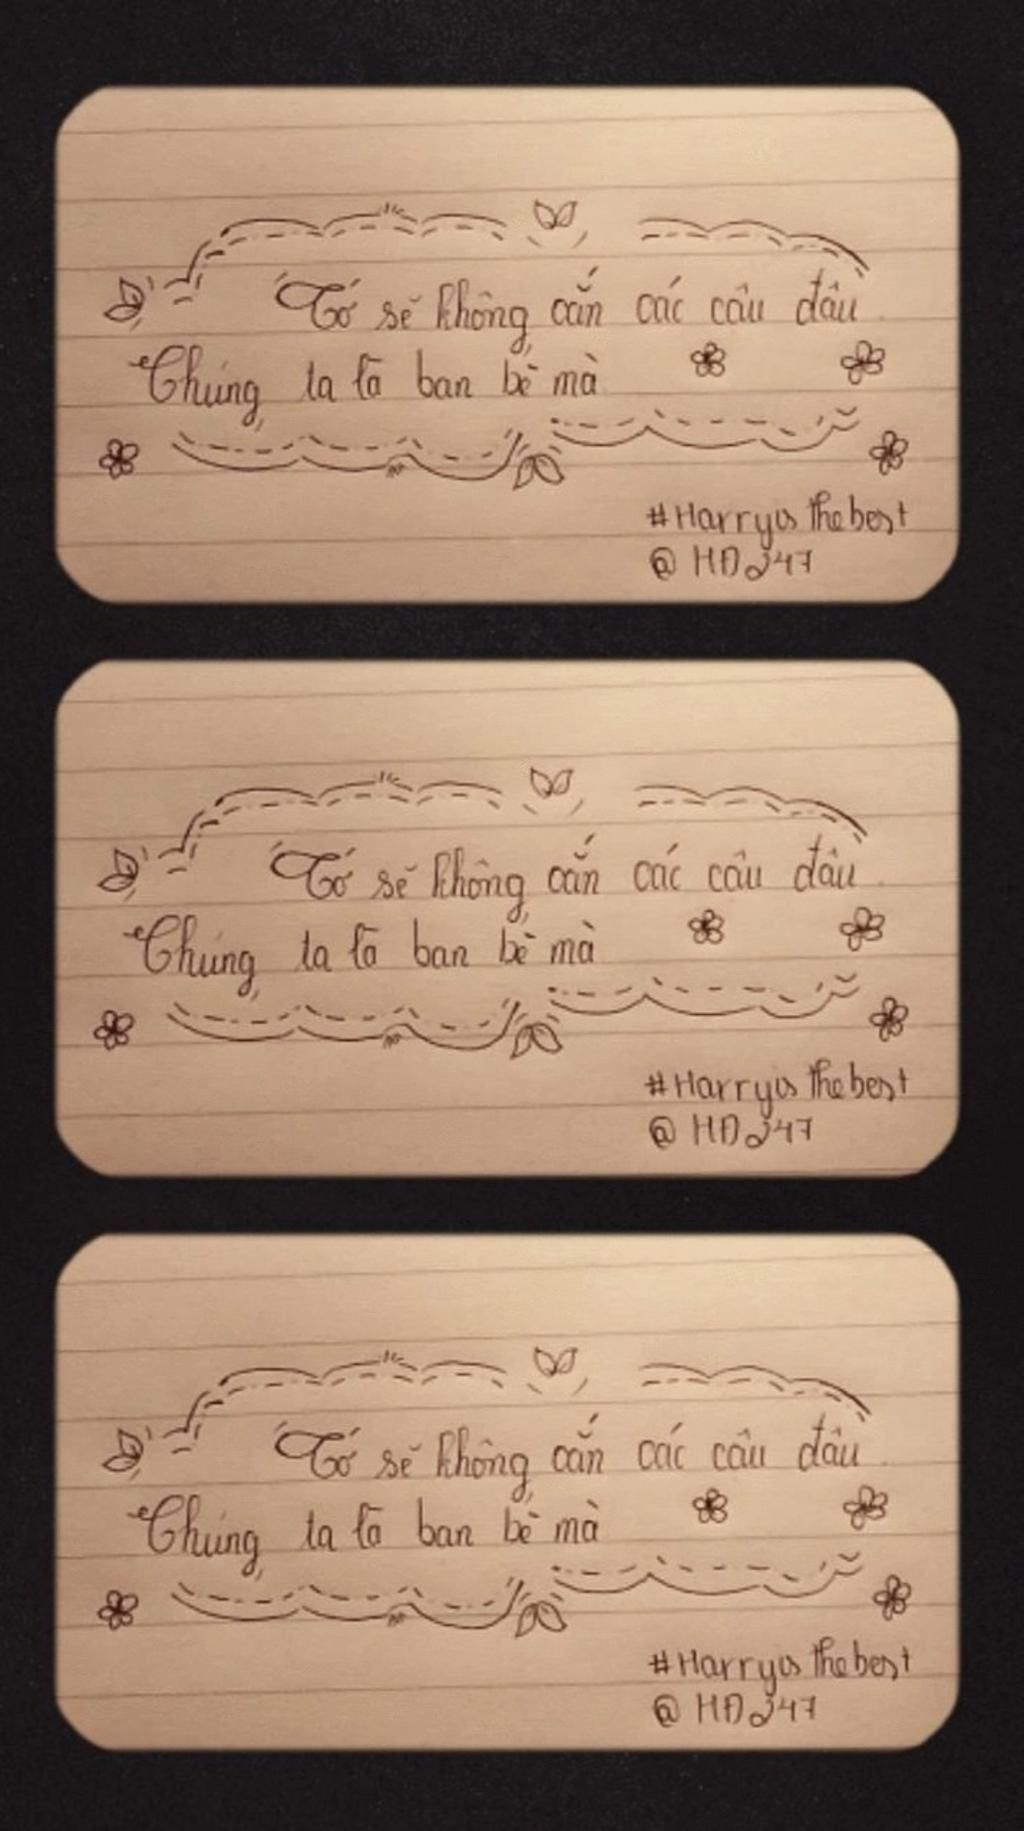 Tớ sẽ không cắn các cậu đâu.
Chúng ta là bạn bè mà
#Harryisthebest
@ HD247
Tớ sẽ không cắn các cậu đâu.
Chúng ta là bạn bè mà
#Harryisthebest
@ HD247
Tớ sẽ không cắn các cậu đâu.
Chúng ta là bạn bè mà
#Harryisthebest
@ HD247